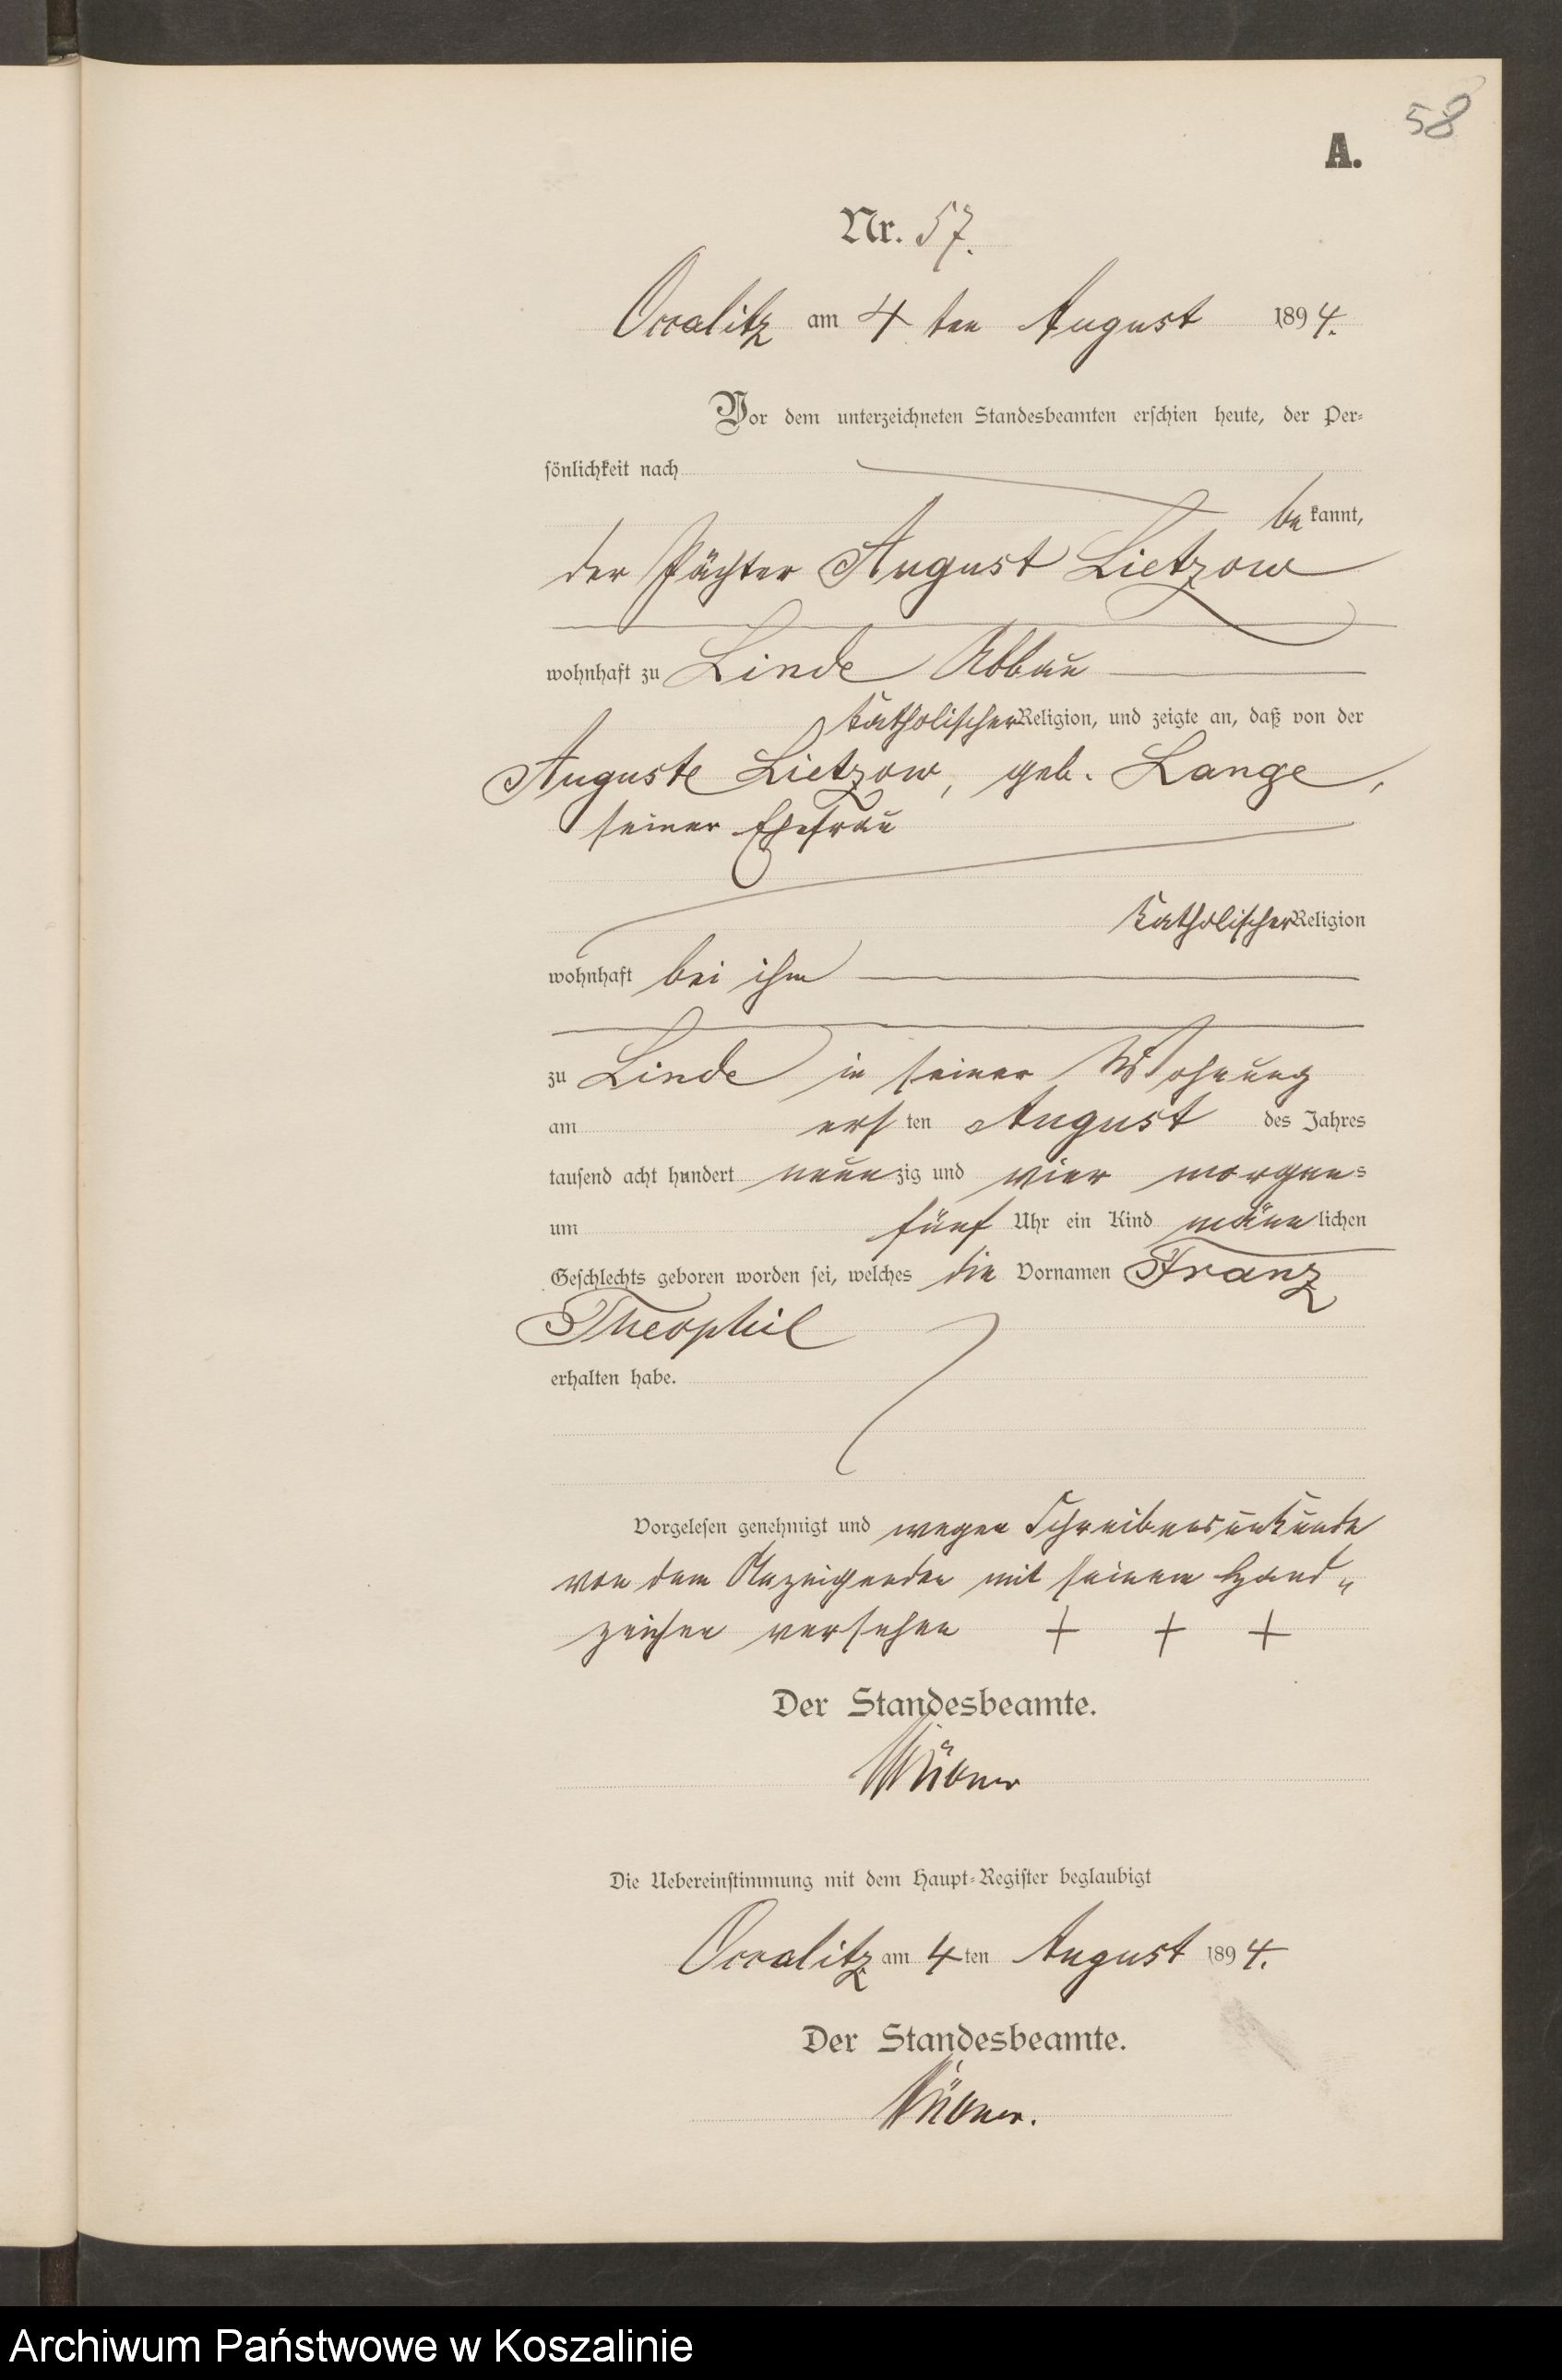 58
A.
Nr. 57.
Occalitz am 4 ten August 1894.
Vor dem unterzeichneten Standesbeamten erschien heute, der Per-
sönlichkeit nach
bekannt,
der Pächter August Lietzow
wohnhaft zu Linde Abbau
katholischer Religion, und zeigte an, daß von der
Auguste Lietzow, geb. Lange,
seiner Ehefrau
katholischer Religion
wohnhaft bei ihm
zu Linde in seiner Wohnung
am ersten August des Jahres
tausend acht hundert neunzig und vier morgens
um fünf Uhr ein Kind männlichen
Geschlechts geboren worden sei, welches die Vornamen Franz
Theophil
erhalten habe.
Vorgelesen genehmigt und wegen Schreibensunkunde
von dem Anzeigenden mit seinem Hand„
zeichen versehen + + +
Der Standesbeamte.
Die Uebereinstimmung mit dem Haupt-Register beglaubigt
Occalitz am 4ten August 1894.
Der Standesbeamte.
Archiwum Państwowe w Koszalinie